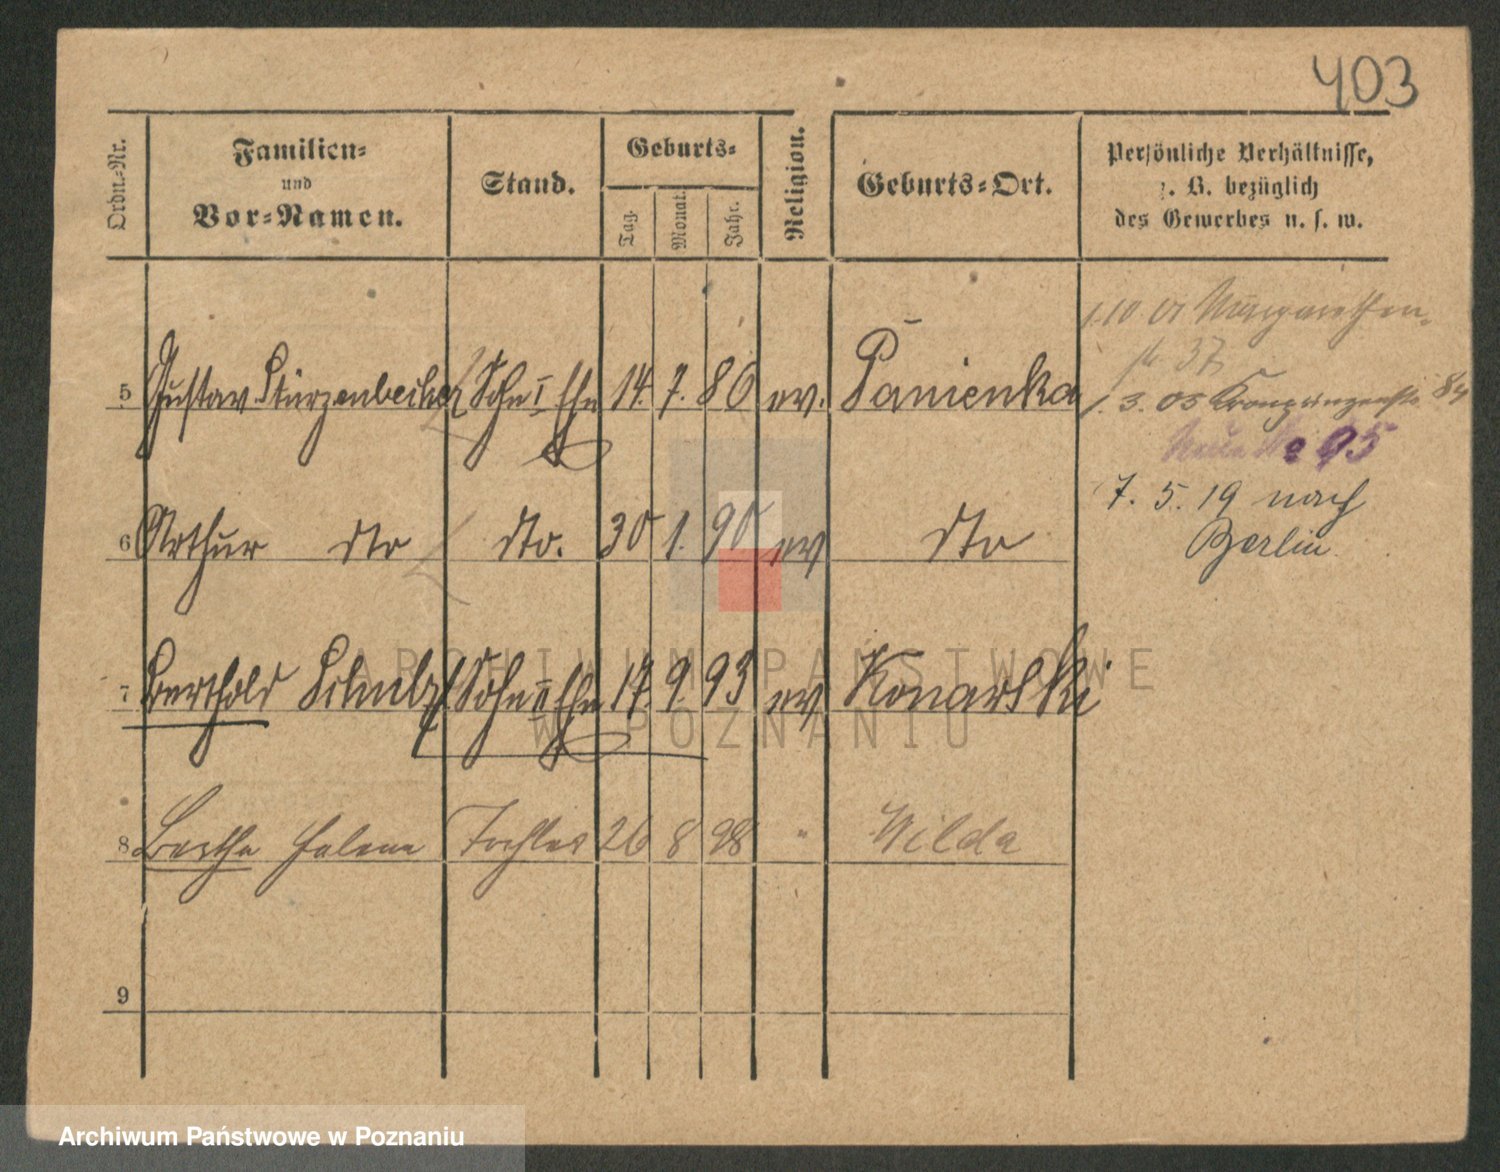 403
Ordn.-Nr.
Familien-
und
Vor-Namen.
Stand.
Geburts-
Tag.
Monat.
Jahr.
Religion.
Geburts-Ort.
Persönliche Verhältnisse,
z. B. bezüglich
des Gewerbes u. s. w.
1.10 01 Margarethen-
str 37
5 Gustav Stürzenbecher Sohn I Ehe 14. 7. 86 ev. Panienka
1. 3. 05 Kronprinzenstr. 84
Neue No 95
7. 5. 19 nach
Berlin.
6 Arthur dto dto. 30 1. 90 ev dto
7 Berthold Schulz Sohn II Ehe 17. 9. 93 ev Konarski
8 Bertha Helene Tochter 26 8 98 " Wilda
9
ARCHIWUM PAŃSTWOWE
W POZNANIU
Archiwum Państwowe w Poznaniu